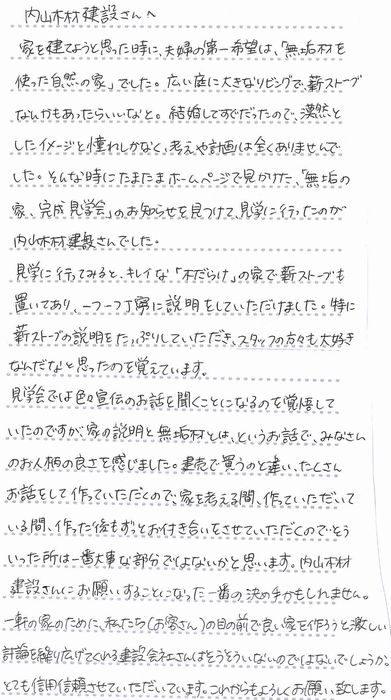 内山木材建設さんへ
家を建てようと思った時に、夫婦の第一希望は、「無垢材を
使った自然の家」でした。広い庭に大きなリビングで、薪ストーブ
なんかもあったらいいなと。結婚してすぐだったので、漠然と
したイメージと憧れしかなく、考えや計画は全くありませんで
した。そんな時にたまたまホームページで見かけた、「無垢の
家、完成見学会」のお知らせを見つけて、見学に行ったのが
内山木材建設さんでした。
見学に行ってみると、キレイな「木だらけ」の家で薪ストーブも
置いてあり、一つ一つ丁寧に説明をしていただけました。特に
薪ストーブの説明をたっぷりしていただき、スタッフの方々も大好き
なんだなと思ったのを覚えています。
見学会では色々宣伝のお話を聞くことになるのを覚悟して
いたのですが、家の説明と無垢材とは、というお話で、みなさん
のお人柄の良さを感じました。建売で買うのと違い、たくさん
お話をして作っていただくので、家を考える間、作っていただいて
いる間、作った後もずっとお付き合いをさせていただくのでそう
いった所は一番大事な部分ではないかと思います。内山木材
建設さんにお願いすることになった一番の決め手かもしれません。
一軒の家のために、私たち(お客さん)の目の前で良い家を作ろうと激しい
討論を繰り広げてくれる建設会社さんはそうそういないのではないでしょうか。
とても信用信頼させていただいています。これからもよろしくお願い致します。